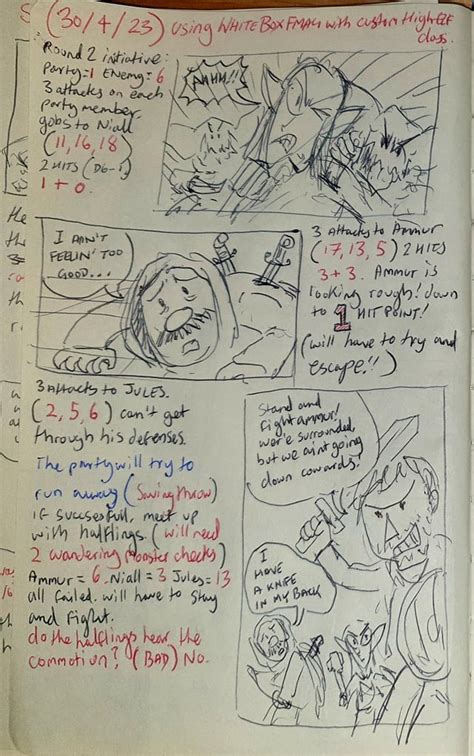 (30/4/23) using WHITEBOX FMAG with custom High ELF
class.
Round 2 initiative:
Party=1 Enemy=6
3 attacks on each
party member
gobs to Niall
(11, 16, 18)
2 HITS (D6-1)
1 + 0.
AAHH!!
I AIN'T
FEELIN' TOO
GOOD...
3 Attacks to Ammur
(17, 13, 5) 2 HITS
3+3. Ammur is
looking rough! down
to 1 HIT POINT!
(will have to try and
escape!!)
3 attacks to JULES.
(2, 5, 6) can't get
through his defenses.
The party will try to
run away (Saving throw)
if succesful, meet up
with halflings. (will need
2 wandering Monster checks)
Ammur = 6. Niall = 3 Jules = 13
all failed. will have to stay
and fight.
do the halflings hear the
commotion? (BAD) No.
Stand and
fight ammur!
we're surrounded,
but we aint going
down cowards!
I
HAVE
A KNIFE
IN MY BACK